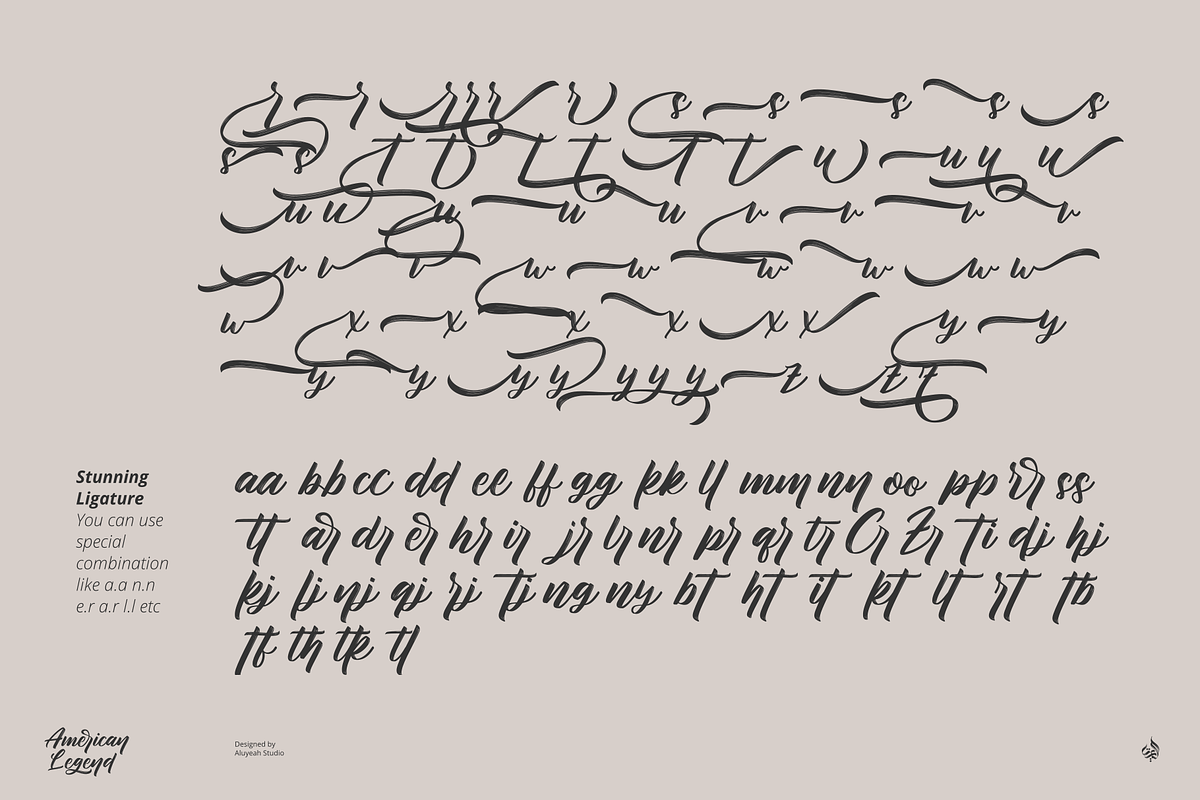 r r r r r r r s s s s s
s s t t t t t t u u u u
u u u u u v v v v
v v v w w w w w w
w x x x x x x y y
y y y y y y y z z z
aa bb cc dd ee ff gg kk ll mm nn oo pp rr ss
tt ar dr er hr ir jr lr nr pr qr tr Cr Zr Ti dj hj
kj lj nj aj rj Tj ng ny bt ht it kt lt rt tb
tf th tk tl
Stunning
Ligature
You can use
special
combination
like a.a n.n
e.r a.r l.l etc
American
Legend
Designed by
Aluyeah Studio